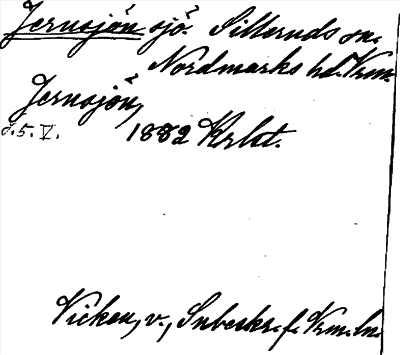 Jernsjön sjö. Silleruds sn.
Nordmarks hd. Vrm.
Jernsjön,
ö. 5. V. 1882 Krlst.
Vicken, v., Snbeskr. f. Vrm. ln.